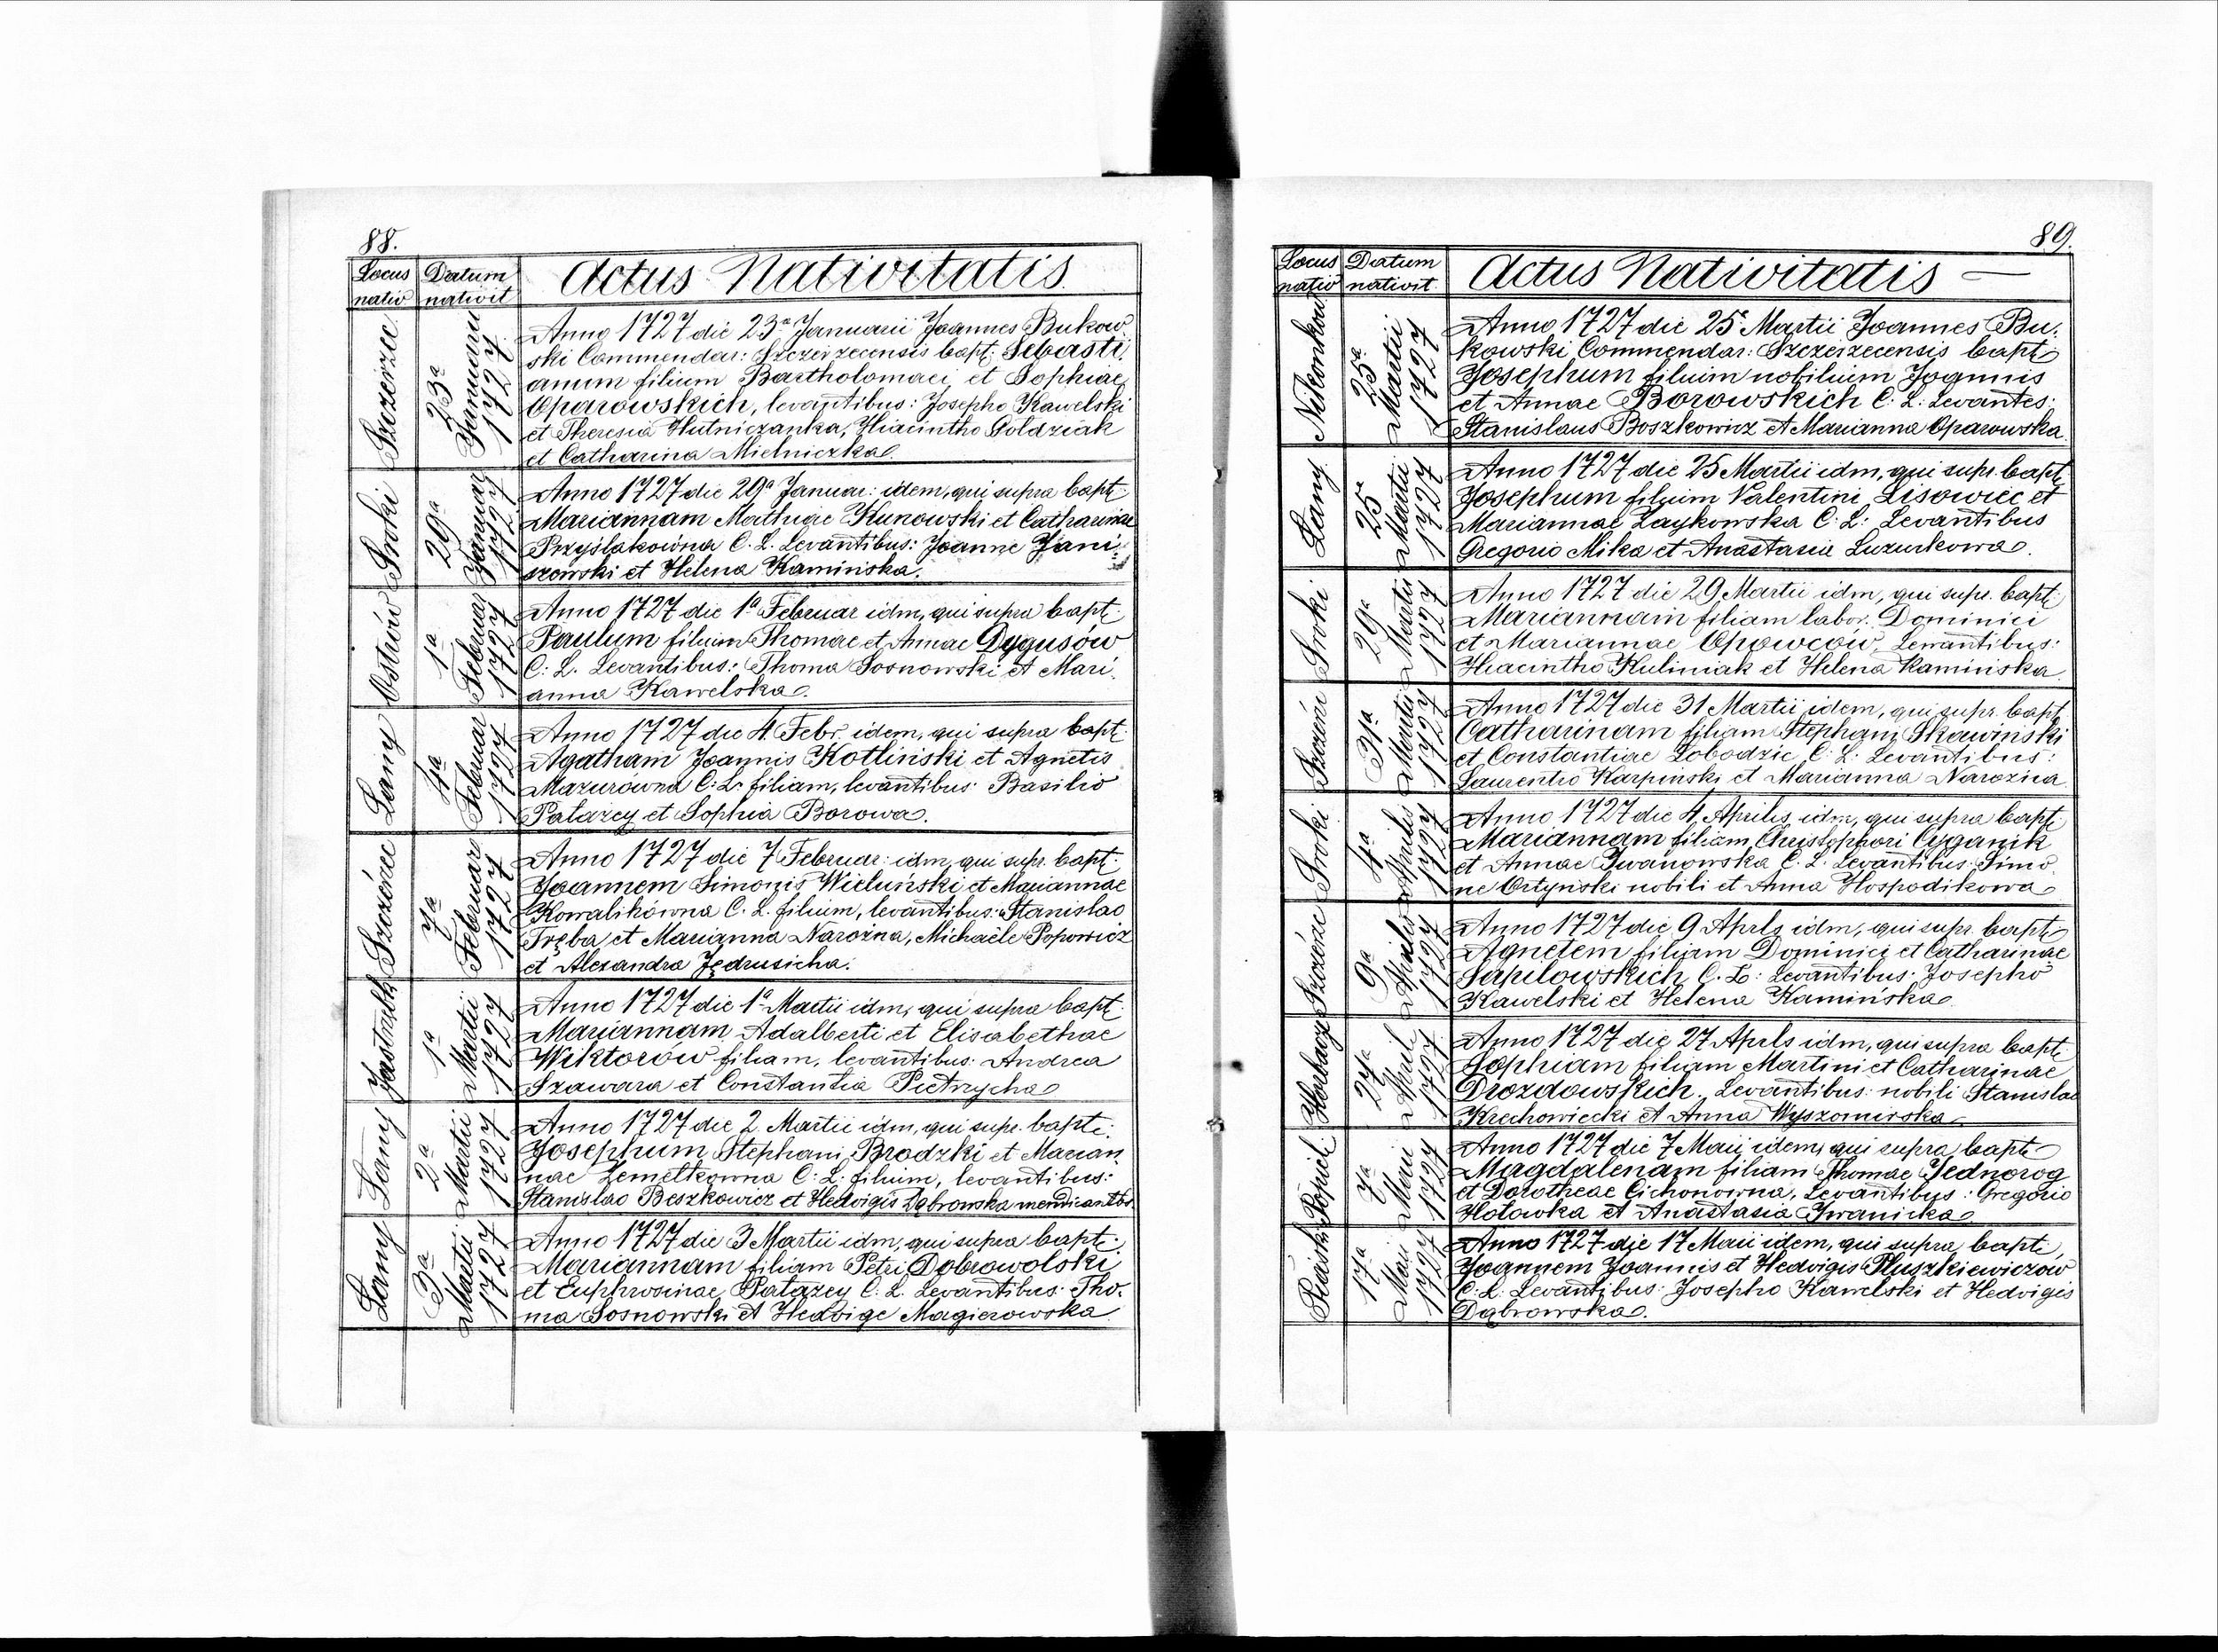 88.
Locus nativ
Datum nativit
Actus Nativitatis
Szczerzec
23ª Januarii 1727
Anno 1727 die 23ª Januarii Joannes Bukow
ski Commendar: Szczerzecensis bapt: Sebasti,
anum filium Bartholomaei et Sophiae
Oparowskich, levantibus: Josepho Kawelski
et Theresia Hutniczanka, Hiacintho Goldziak
et Catharina Mielniczka.
Sroki
29ª Januar 1727
Anno 1727 die 29ª Januar: idem, qui supra bapt:
Mariannam Mathiae Kunowski et Catharinae
Przyślakowna C. L. Levantibus: Joanne Jani,
szowski et Helena Kamińska.
Ostrów
1ª Februar 1727
Anno 1727 die 1ª Februar idm, qui supra bapt:
Paulum filium Thomae et Annae Dygusów
C: L. Levantibus: Thoma Sosnowski et Mari,
anna Kawelska.
Łany
4ª Februar 1727
Anno 1727 die 4. Febr. idem, qui supra bapt:
Agatham Joannis Kotliński et Agnetis
Mazurówna C: L: filiam, levantibus: Basilio
Patazey et Sophia Borowa.
Szczérzec
7ª Februar 1727
Anno 1727 die 7 Februar: idm, qui supr. bapt:
Joannem Simonis Wieluński et Mariannae
Kowalikówna C. L. filium, levantibus: Stanislao
Tręba et Marianna Narożna, Michaële Popowicz
et Alexandra Jędrusicha.
1ª Martii 1727
Anno 1727 die 1ª Martii idm, qui supra bapt:
Mariannam Adalberti et Elisabethae
Wiktorów filiam, levantibus: Andrea
Szawara et Constantia Pietrzycha
Łany
2ª Martii 1727
Anno 1727 die 2. Martii idm, qui supr. bapti:
Josephum Stephani Brodzki et Marian
nae Zemełkowna C: L: filium, levantibus:
Stanislao Beszkowicz et Hedvigis Dąbrowska mendicantbs.
Łany
3ª Martii 1727
Anno 1727 die 3 Martii idm, qui supra bapt:
Mariannam filiam Petri Dobrowolski
et Euphrosinae Patazey C. L. Levantibus: Tho,
ma Sosnowski et Hedvige Magierowska
89.
Locus nativ
Datum nativit
Actus Nativitatis —
25ª Martii 1727
Anno 1727 die 25ª Martii Joannes Bu,
kowski Commendar: Szczerzecensis bapti
Josephum filium nobilium Joannis
et Annae Borowskich C: L: Levantes:
Stanislaus Boszkowicz et Marianna Oparowska.
Łany
25ª Martii 1727
Anno 1727 die 25 Martii idm, qui supr. bapt,
Josephum filium Valentini Lisowiec et
Mariannae Zaykowska C: L: Levantibus
Gregorio Mika et Anastasia Luzurkowa.
Sroki
29ª Martii 1727
Anno 1727 die 29 Martii idm, qui supr. bapt:
Mariannam filiam labor. Dominici
et Mariannae Opowców, Levantibus:
Hiacintho Kuliniak et Helena Kamińska.
Szczérzec
31ª Martii 1727
Anno 1727 die 31 Martii idem, qui supr. bapt,
Catharinam filiam Stephani Skawinski
et Constantiae Lobodzic C: L: Levantibus:
Laurentio Karpiński et Marianna Narozna
Sroki
4ª Aprilis 1727
Anno 1727 die 4, Aprilis idm, qui supra bapt:
Mariannam filiam Christophori Cyganik
et Annae Iwanowska C. L. Levantibus: Simo
ne Ortyński nobili et Anna Hospodikowa
Szczérzec
9ª Aprilis 1727
Anno 1727 die 9 Aprls idm, qui supr. bapt:
Agnetem filiam Dominici et Catharinae
Sapilowskich C. L: Levantibus: Josepho
Kawelski et Helena Kamińska.
Horbacz
27ª April 1727
Anno 1727 die 27 Aprls idm, qui supra bapt:
Sophiam filiam Martini et Catharinae
Drozdowskich, Levantibus: nobili Stanislao
Krechowiecki et Anna Wyszomirska
Popiel
7ª Maii 1727
Anno 1727 die 7 Maii idem, qui supra bapt:
Magdalenam filiam Thomae Jednorog
et Dorotheae Cichonowna, Levantibus: Gregorio
Hołowka et Anastasia Iwanicka.
Piaski
17ª Maii 1727
Anno 1727 die 17 Maii idem, qui supra bapti,
Joannem Joannis et Hedvigis Pluszkiewiczów
C: L: Levantibus: Josepho Kawelski et Hedvigis
Dąbrowska.